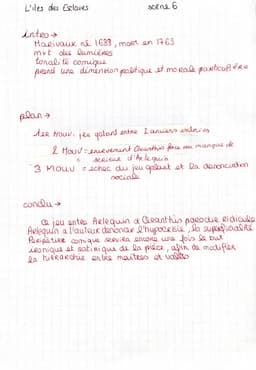 L'iles des Esclaves scène 6
intro →
Marivaux né 1688, mort en 1763
mvt des lumières
tonalité comique
prend une dimension politique et morale particulière
plan →
1er Mouv. jeu galant entre 2 anciens
2 Mouv = enervement Cleanthis face au manque de
serieux d'Arlequin
3 Mouv = echec du jeu galant et la denonciation
sociale
conclu →
Ce jeu entre Arlequin a Cleanthis parodie ridicule
Arlequin a l'auteur denoncer l'hypocrisie, la superficialité
Peripétie comique servira encore une fois le but
ironique et satirique de la pièce, afin de modifier
la hierarchie entre maitres et valets